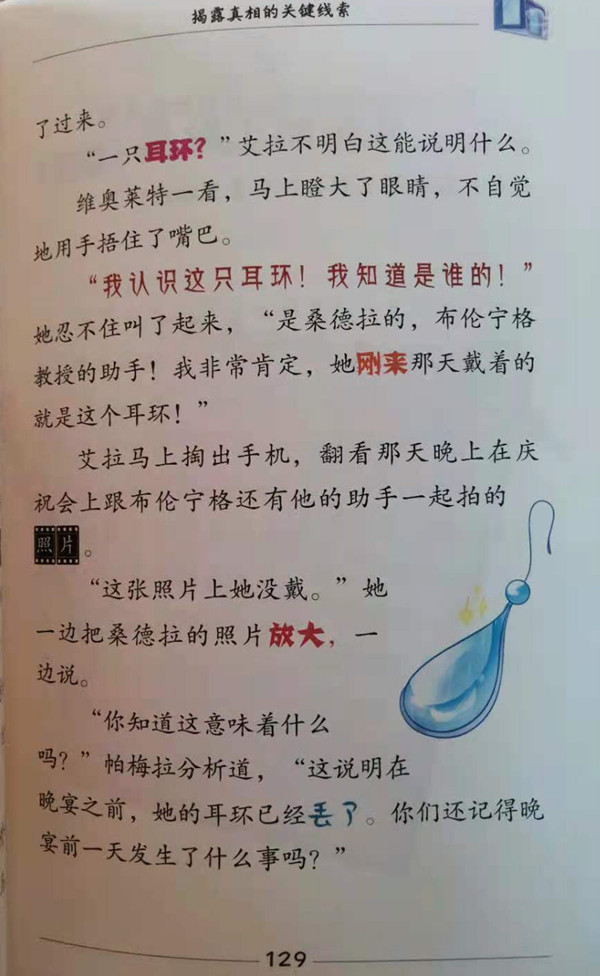 揭露真相的关键线索
了过来。
“一只耳环？”艾拉不明白这能说明什么。
维奥莱特一看，马上瞪大了眼睛，不自觉
地用手捂住了嘴巴。
“我认识这只耳环！我知道是谁的！”
她忍不住叫了起来，“是桑德拉的，布伦宁格
教授的助手！我非常肯定，她刚来那天戴着的
就是这个耳环！”
艾拉马上掏出手机，翻看那天晚上在庆
祝会上跟布伦宁格还有他的助手一起拍的
照片。
“这张照片上她没戴。”她
一边把桑德拉的照片放大，一
边说。
“你知道这意味着什么
吗？”帕梅拉分析道，“这说明在
晚宴之前，她的耳环已经丢了。你们还记得晚
宴前一天发生了什么事吗？”
129